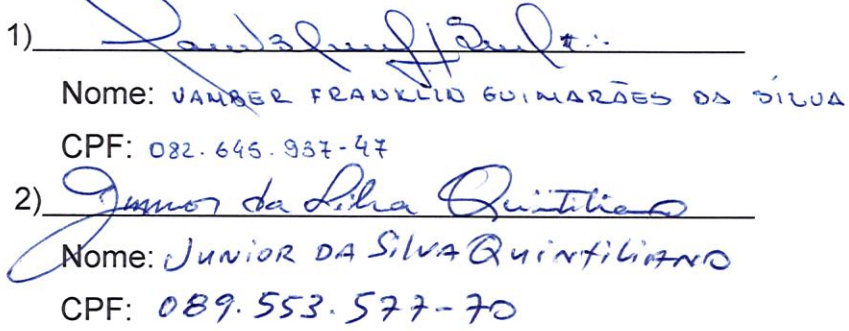 1)
Nome: VAMBER FRANKLIN GUIMARÃES DA SILVA
CPF: 082.645.937-47
2) Junior da Silva Quintiliano
Nome: JUNIOR DA SILVA QUINTILIANO
CPF: 089.553.577-70